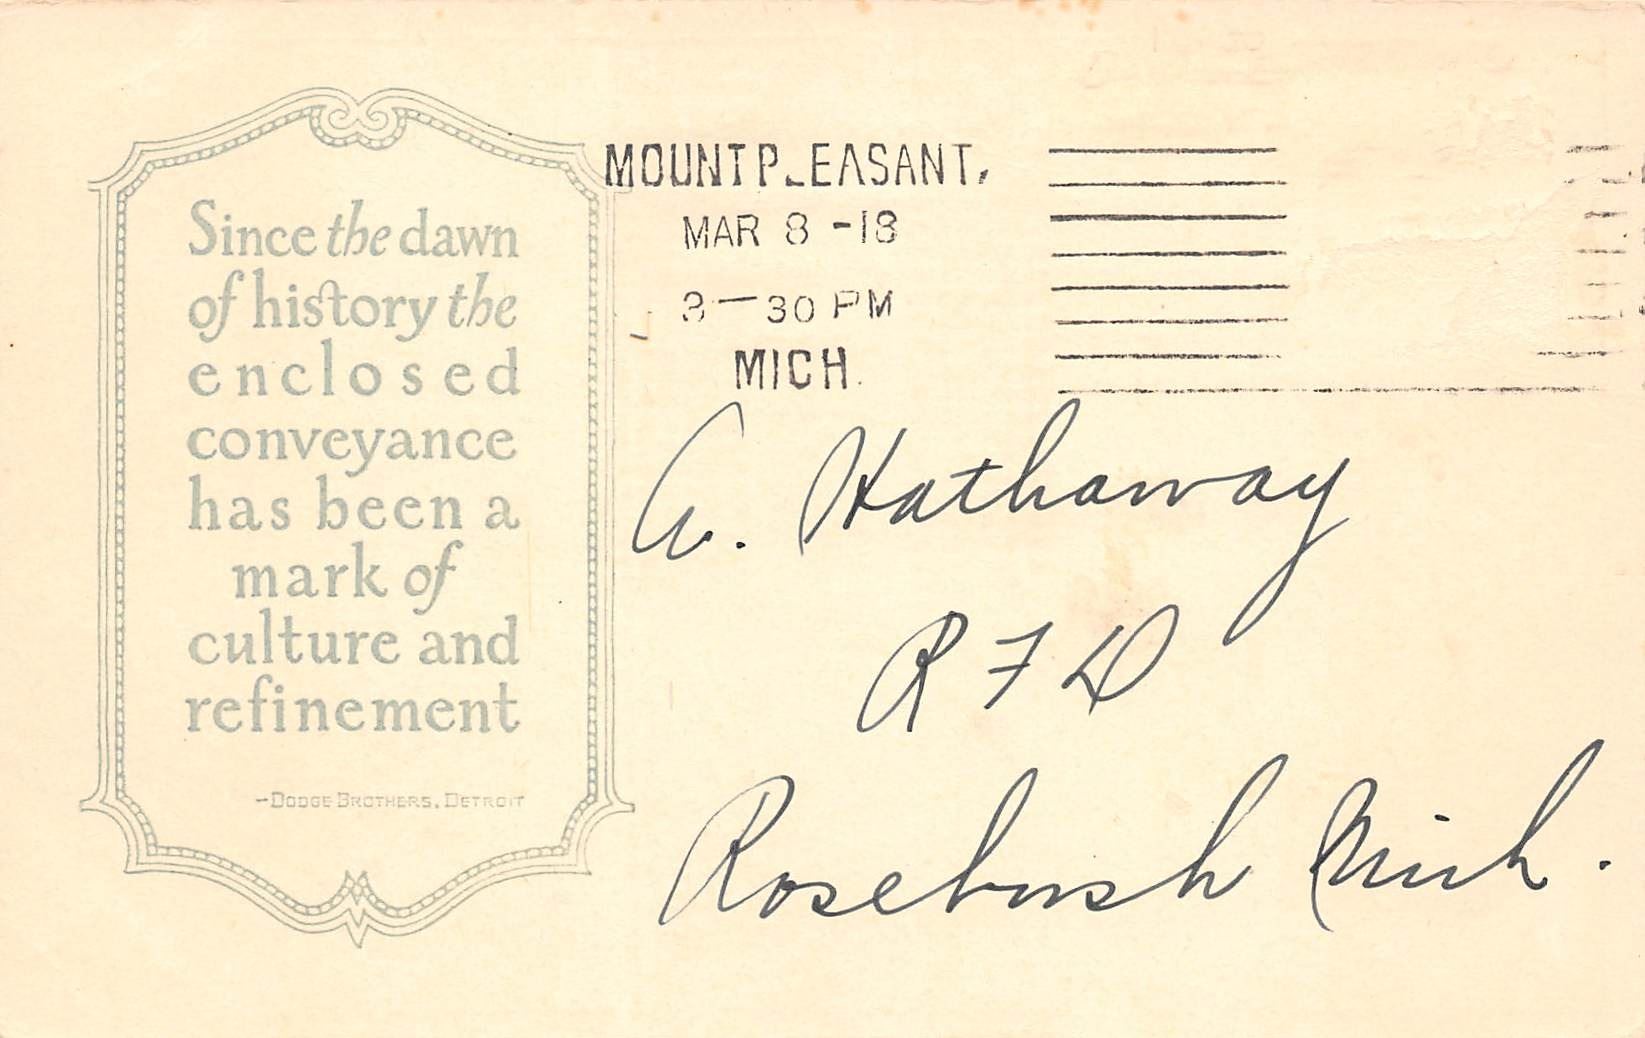 Since the dawn
of history the
enclosed
conveyance
has been a
mark of
culture and
refinement
-DODGE BROTHERS, DETROIT
MOUNT PLEASANT,
MAR 8 -18
3-30 PM
MICH.
A. Hathaway
R F D
Rosebush Mich.